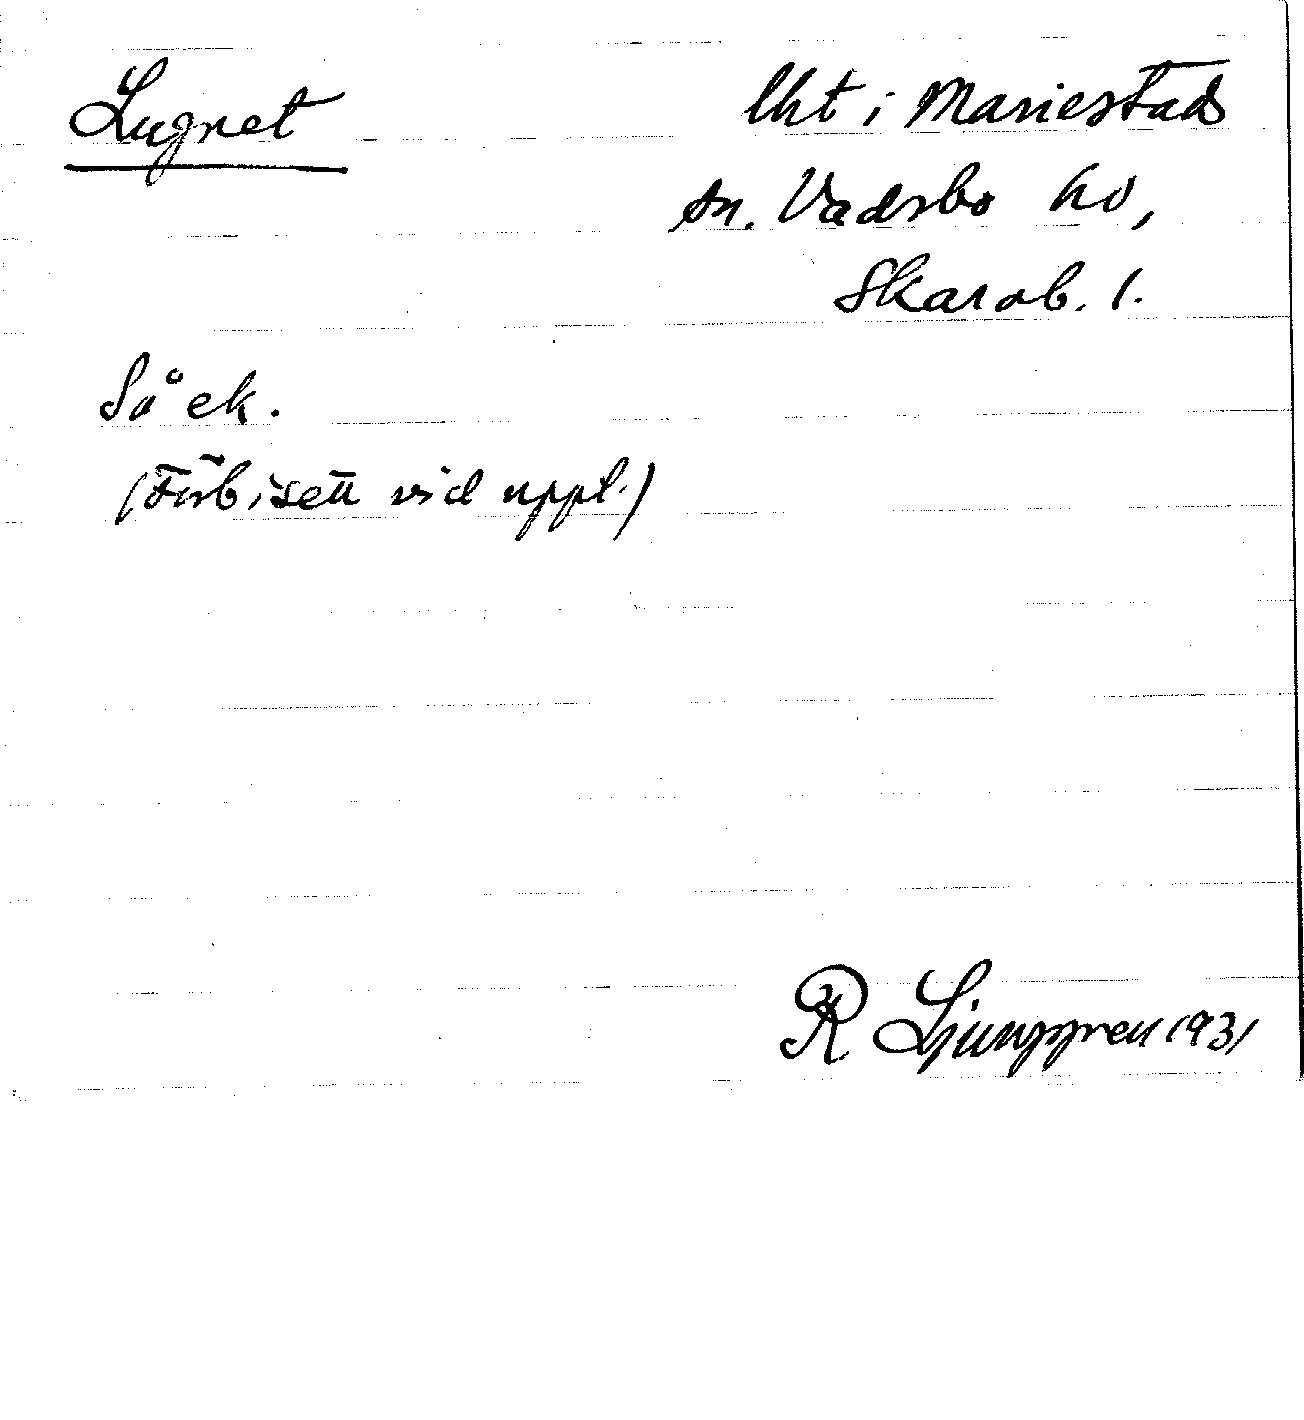 Lugnet
lht i Mariestads
sn. Vadsbo hd,
Skarab. l.
Så ek.
(Förbisett vid uppt.)
R Ljunggren 1931